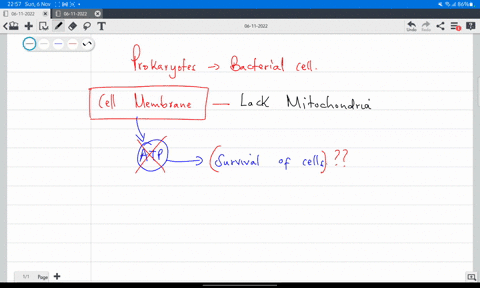 22:57 Sun, 6 Nov 86%
06-11-2022 06-11-2022
06-11-2022 Undo Redo
Prokaryotes → Bacterial cell.
Cell Membrane — Lack Mitochondria
ATP → (Survival of cells) ??
1/1 Page